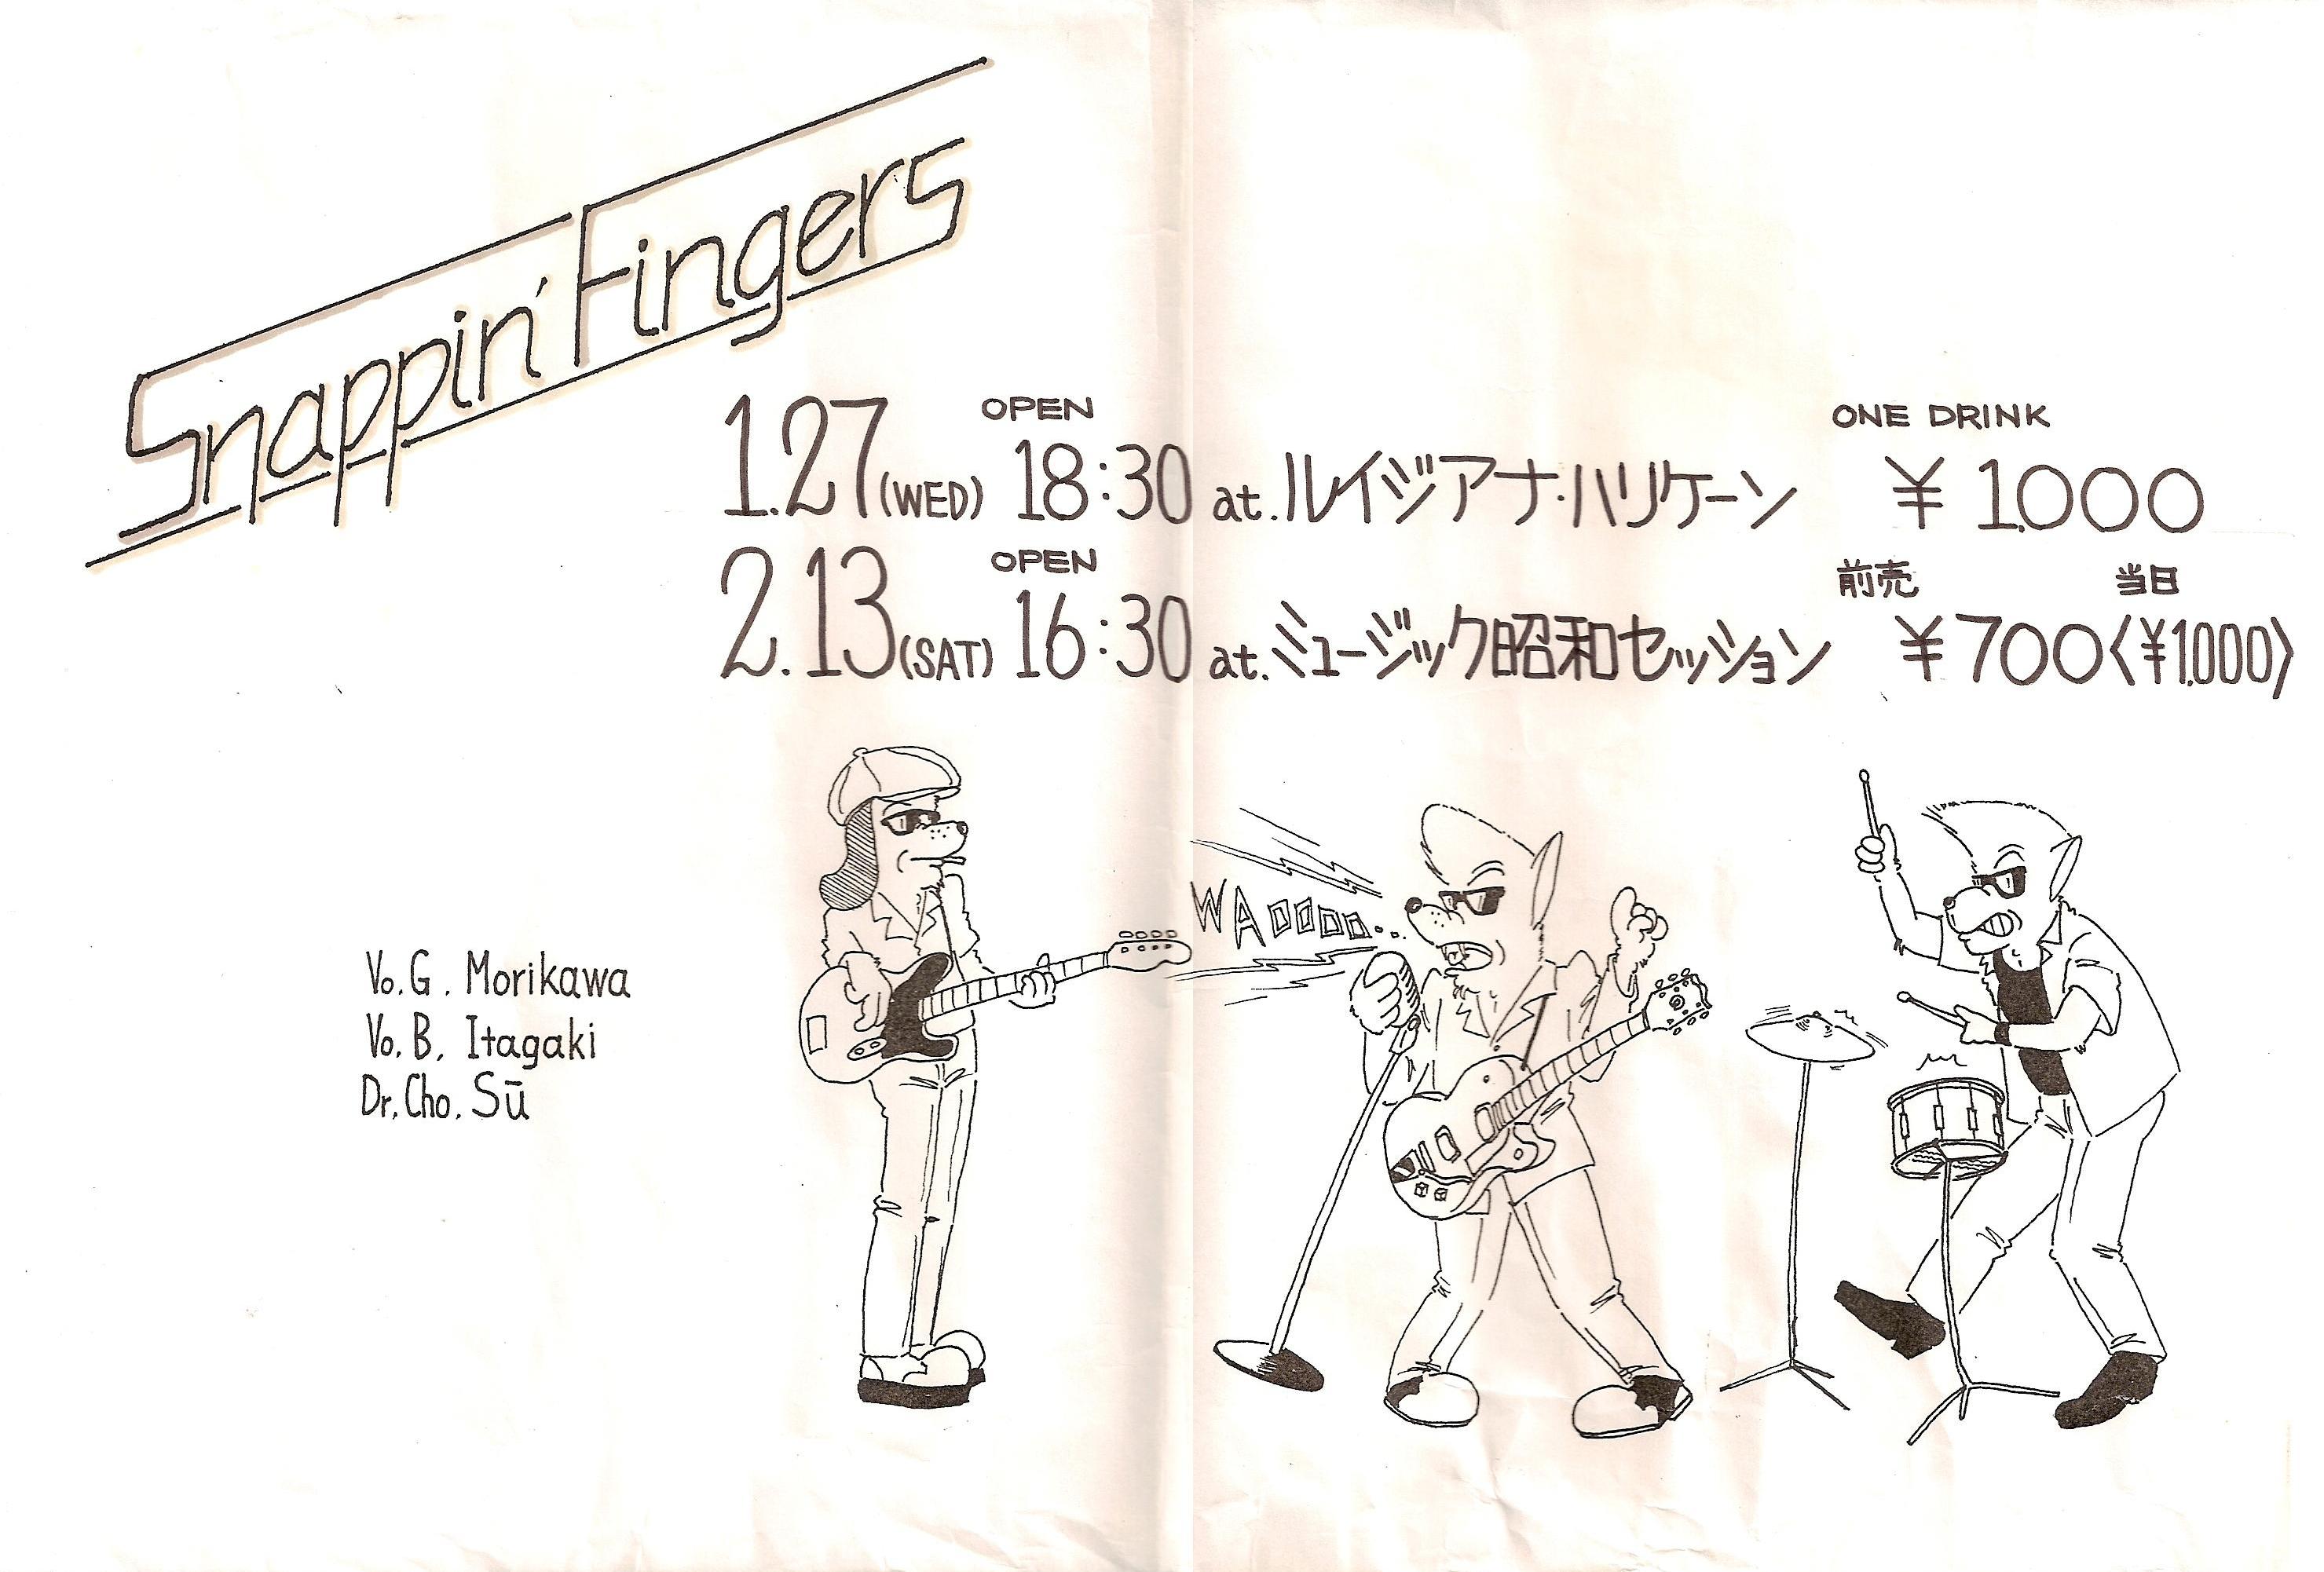 Snappin' Fingers
OPEN ONE DRINK
1.27(WED) 18:30 at.ルイジアナ・ハリケーン ¥1.000
OPEN 前売 当日
2.13(SAT) 16:30 at.ミュージック昭和セッション ¥700〈¥1.000〉
WAOOOO...
Vo.G. Morikawa
Vo.B. Itagaki
Dr.Cho. Sū